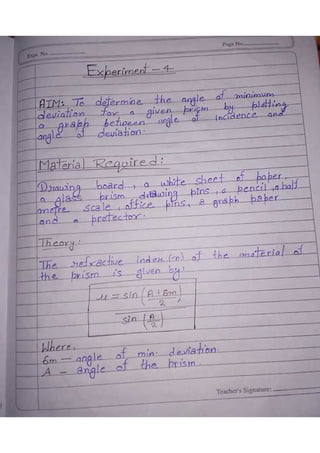 Expt. No.
Page No.
Experiment - 4
AIM: To determine the angle of minimum
deviation for a given prism by plotting
a graph between angle of incidence and
angle of deviation.
Material Required:
Drawing board, a white sheet of paper,
a glass prism drawing pins, a pencil, a half
metre scale, office pins, a graph paper
and a protector.
Theory:
The refractive index (n) of the material of
the prism is given by:
μ = sin (A + δm / 2)
sin (A / 2)
Where,
δm — angle of min. deviation
A — angle of the prism.
Teacher's Signature: